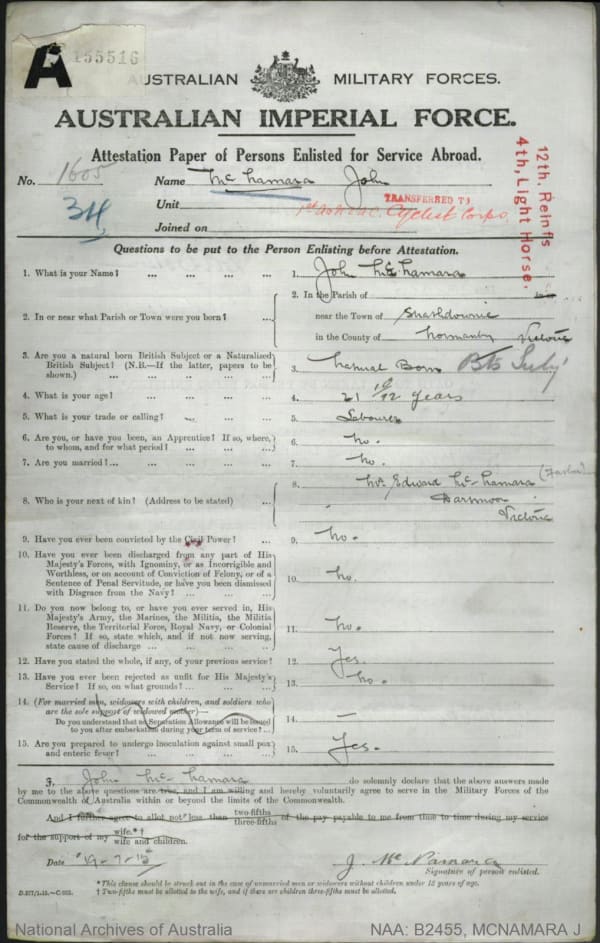 155516
A
AUSTRALIAN MILITARY FORCES.
AUSTRALIAN IMPERIAL FORCE.
Attestation Paper of Persons Enlisted for Service Abroad.
No. 1605 Name Mc Namara John
34
Unit TRANSFERRED TO
Cyclist Corps.
Joined on
12th. Reinfts
4th, Light Horse.
Questions to be put to the Person Enlisting before Attestation.
1. What is your Name? ... ... ... ... 1. John McNamara
2. In or near what Parish or Town were you born? ... 2. In the Parish of
near the Town of Strathdownie
in the County of Normanby Victoria
3. Are you a natural born British Subject or a Naturalized
British Subject? (N.B.—If the latter, papers to be
shown.) ... ... ... ... ... 3. Natural Born
4. What is your age? ... ... ... ... 4. 21 10/12 years
5. What is your trade or calling? ... ... ... 5. Labourer
6. Are you, or have you been, an Apprentice? If so, where,
to whom, and for what period? ... ... ... 6. No.
7. Are you married? ... ... ... ... ... 7. No.
8. Who is your next of kin? (Address to be stated) ... 8. Mr Edward McNamara (Father)
Dartmoor
Victoria
9. Have you ever been convicted by the Civil Power? ... 9. No.
10. Have you ever been discharged from any part of His
Majesty's Forces, with Ignominy, or as Incorrigible and
Worthless, or on account of Conviction of Felony, or of a
Sentence of Penal Servitude, or have you been dismissed
with Disgrace from the Navy? ... ... ... 10. No.
11. Do you now belong to, or have you ever served in, His
Majesty's Army, the Marines, the Militia, the Militia
Reserve, the Territorial Force, Royal Navy, or Colonial
Forces? If so, state which, and if not now serving,
state cause of discharge ... ... ... ... 11. No.
12. Have you stated the whole, if any, of your previous service? 12. Yes.
13. Have you ever been rejected as unfit for His Majesty's
Service? If so, on what grounds? ... ... ... 13. No.
14. (For married men, widowers with children, and soldiers who
are the sole support of widowed mother)—
Do you understand that no Separation Allowance will be issued
to you after embarkation during your term of service? ... 14. —
15. Are you prepared to undergo inoculation against small pox
and enteric fever? ... ... ... ... 15. Yes.
I, John McNamara do solemnly declare that the above answers made
by me to the above questions are true, and I am willing and hereby voluntarily agree to serve in the Military Forces of the
Commonwealth of Australia within or beyond the limits of the Commonwealth.
And I further agree to allot not less than two-fifths three-fifths of the pay payable to me from time to time during my service
for the support of my wife.*† wife and children.
Date 19-7-15 J. McNamara
Signature of person enlisted.
* This clause should be struck out in the case of unmarried men or widowers without children under 18 years of age.
† Two-fifths must be allotted to the wife, and if there are children three-fifths must be allotted.
National Archives of Australia NAA: B2455, MCNAMARA J